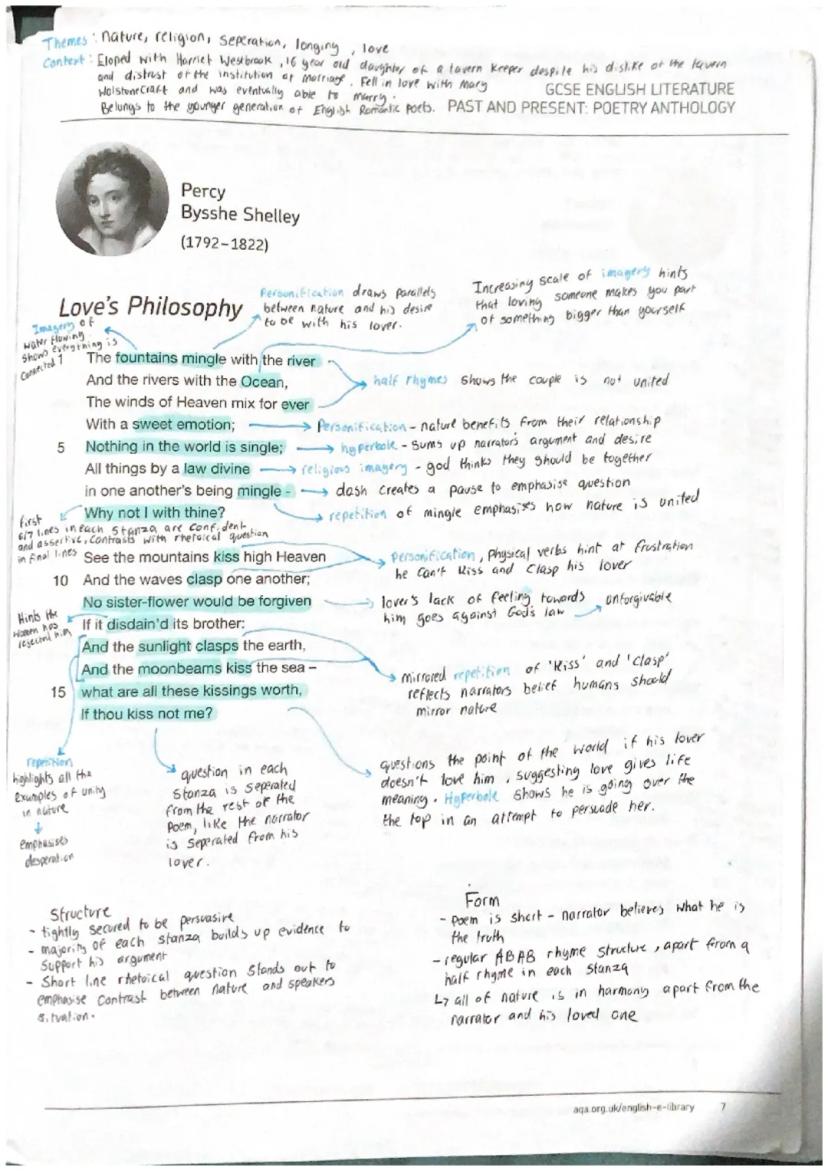 Themes: nature, religion, seperation, longing, love
Context: Eloped with Harriet Westbrook, 16 year old daughter of a tavern keeper despite his dislike of the tavern
and distrust of the institution of marriage. Fell in love with Mary
Wolstonecraft and was eventually able to marry.
Belongs to the younger generation of English Romantic poets.
GCSE ENGLISH LITERATURE
PAST AND PRESENT: POETRY ANTHOLOGY
Percy
Bysshe Shelley
(1792–1822)
Love's Philosophy
Personification draws parallels
between nature and his desire
to be with his lover.
Increasing scale of imagery hints
that loving someone makes you part
of something bigger than yourself
Imagery of
water flowing
shows everything is
connected
1 The fountains mingle with the river
And the rivers with the Ocean,
The winds of Heaven mix for ever
half rhymes shows the couple is not united
With a sweet emotion;
Personification – nature benefits from their relationship
5 Nothing in the world is single;
hyperbole – sums up narrators argument and desire
All things by a law divine
religious imagery – god thinks they should be together
in one another's being mingle -
dash creates a pause to emphasise question
Why not I with thine?
repetition of mingle emphasises how nature is united
first
6/7 lines in each stanza are confident
and assertive, contrasts with rhetoical question
in final lines
See the mountains kiss high Heaven
10 And the waves clasp one another;
Personification, physical verbs hint at frustration
he can't kiss and clasp his lover
No sister-flower would be forgiven
If it disdain'd its brother:
lover's lack of feeling towards
him goes against God's law
unforgivable
Hints the
women has
rejected him
And the sunlight clasps the earth,
And the moonbeams kiss the sea –
15 what are all these kissings worth,
If thou kiss not me?
mirrored repetition of 'kiss' and 'clasp'
reflects narrators belief humans should
mirror nature
repetition
highlights all the
examples of unity
in nature
emphasises
desperation
question in each
stanza is seperated
from the rest of the
poem, like the narrator
is seperated from his
lover.
questions the point of the world if his lover
doesn't love him, suggesting love gives life
meaning. Hyperbole shows he is going over the
the top in an attempt to persuade her.
Structure
- tightly secured to be persuasive
- majority of each stanza builds up evidence to
support his argument
- Short line rhetoical question stands out to
emphasise contrast between nature and speakers
situation.
Form
- poem is short – narrator believes what he is
the truth
- regular ABAB rhyme structure, apart from a
half rhyme in each stanza
↳ all of nature is in harmony apart from the
narrator and his loved one
aqa.org.uk/english-e-library 7